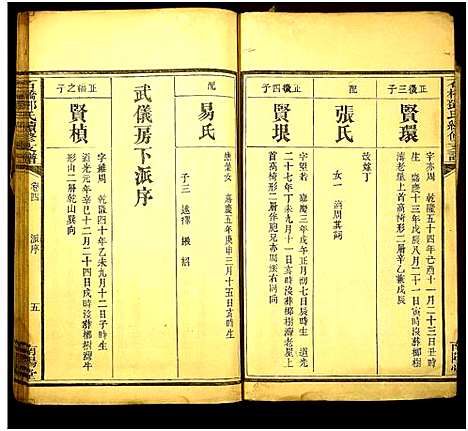 正儀三子
賢環
字亦周 乾隆五十四年己酉十一月二十三日丑時生
嘉慶十三年戊辰八月二十一日寅時沒葬榔樹
灣老屋上首高椅形二層辛乙兼戌辰
配
張氏
故嫁丁
女一 適周其詞
正儀四子
賢垠
字望若 嘉慶三年戊午正月初七日辰時生 道光
二十七年丁未九月十一日亥時沒葬榔樹灣老屋上
首高椅形二層伴胞兄亦周
右同向
配
易氏
子三
嘉慶五年庚申三月十五日亥時生
武儀房下派序
正福之子
賢楨
字商周 乾隆四十年乙未九月十二日子時生
道光元年辛巳十二月二十四日戌時沒葬榔樹灣牛
形山二層乾山巽向
石橋鄧氏續修支譜
卷四
派序
五
南陽堂